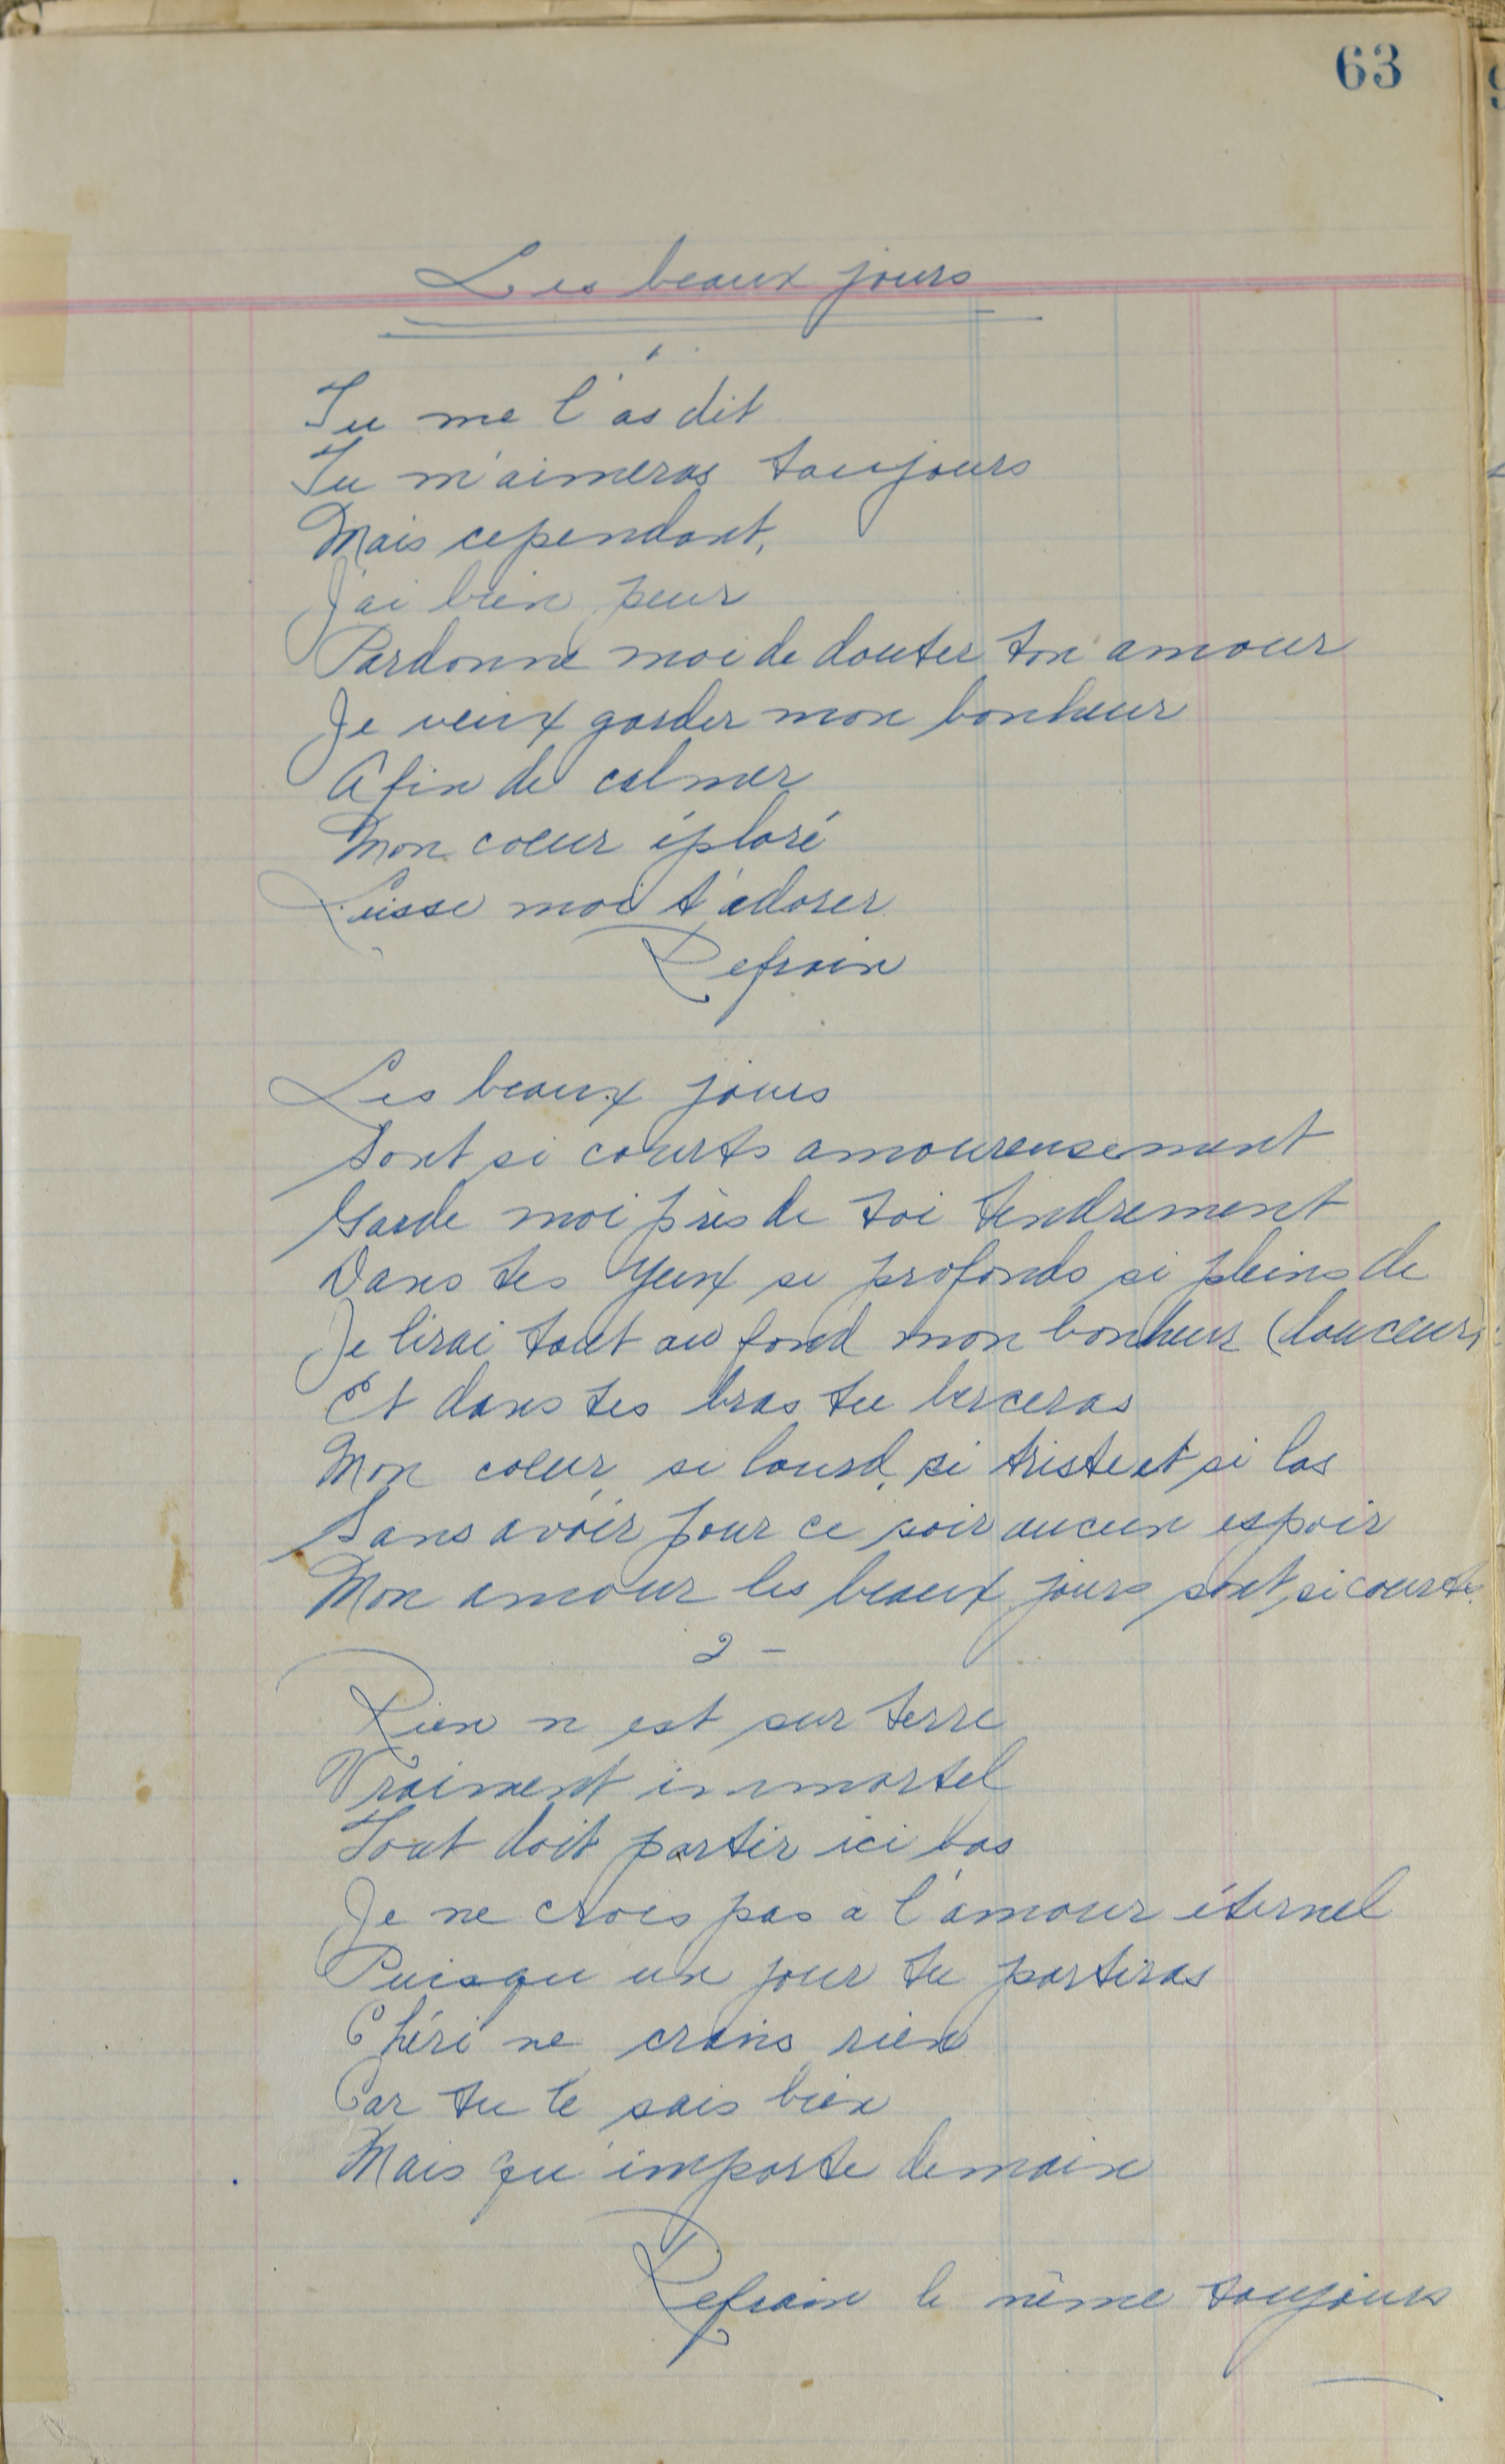 63
Les beaux jours
1
Tu me l'as dit
Tu m'aimeras toujours
Mais cependant,
J'ai bien peur
Pardonne moi de douter ton amour
Je veux garder mon bonheur
Afin de calmer
Mon coeur éploré
Laisse moi t'adorer
Refrain
Les beaux jours
Sont si courts amoureusement
Garde moi près de toi tendrement
Dans tes yeux si profonds si pleins de
Je lirai tout au fond mon bonheur (douceur)
Et dans tes bras tu berceras
Mon coeur, si lourd, si triste et si las
Sans avoir pour ce soir aucun espoir
Mon amour les beaux jours sont si courts.
2 -
Rien n est sur terre
Vraiment immortel
Tout doit partir ici bas
Je ne crois pas a l'amour éternel
Puisqu un jour tu partiras
Chéri ne crains rien
Car tu le sais bien
Mais qu'importe demain
Refrain le même toujours